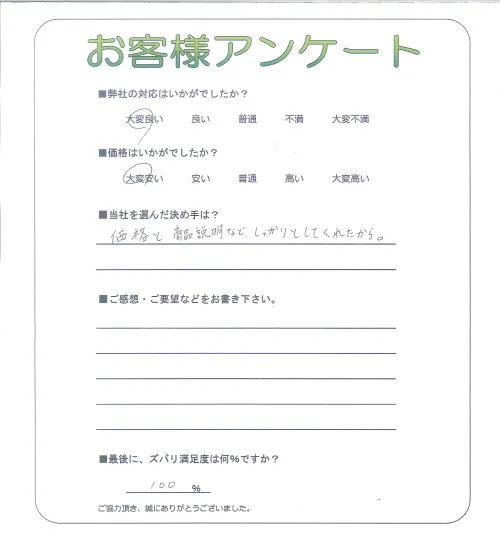 お客様アンケート
■弊社の対応はいかがでしたか？
大変良い 良い 普通 不満 大変不満
■価格はいかがでしたか？
大変安い 安い 普通 高い 大変高い
■当社を選んだ決め手は？
価格と商品説明など しっかりとしてくれたから。
■ご感想・ご要望などをお書き下さい。
■最後に、ズバリ満足度は何％ですか？
100 ％
ご協力頂き、誠にありがとうございました。